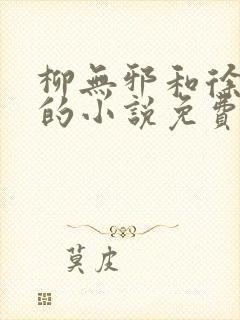 柳無邪和徐
的小説免費
莫皮